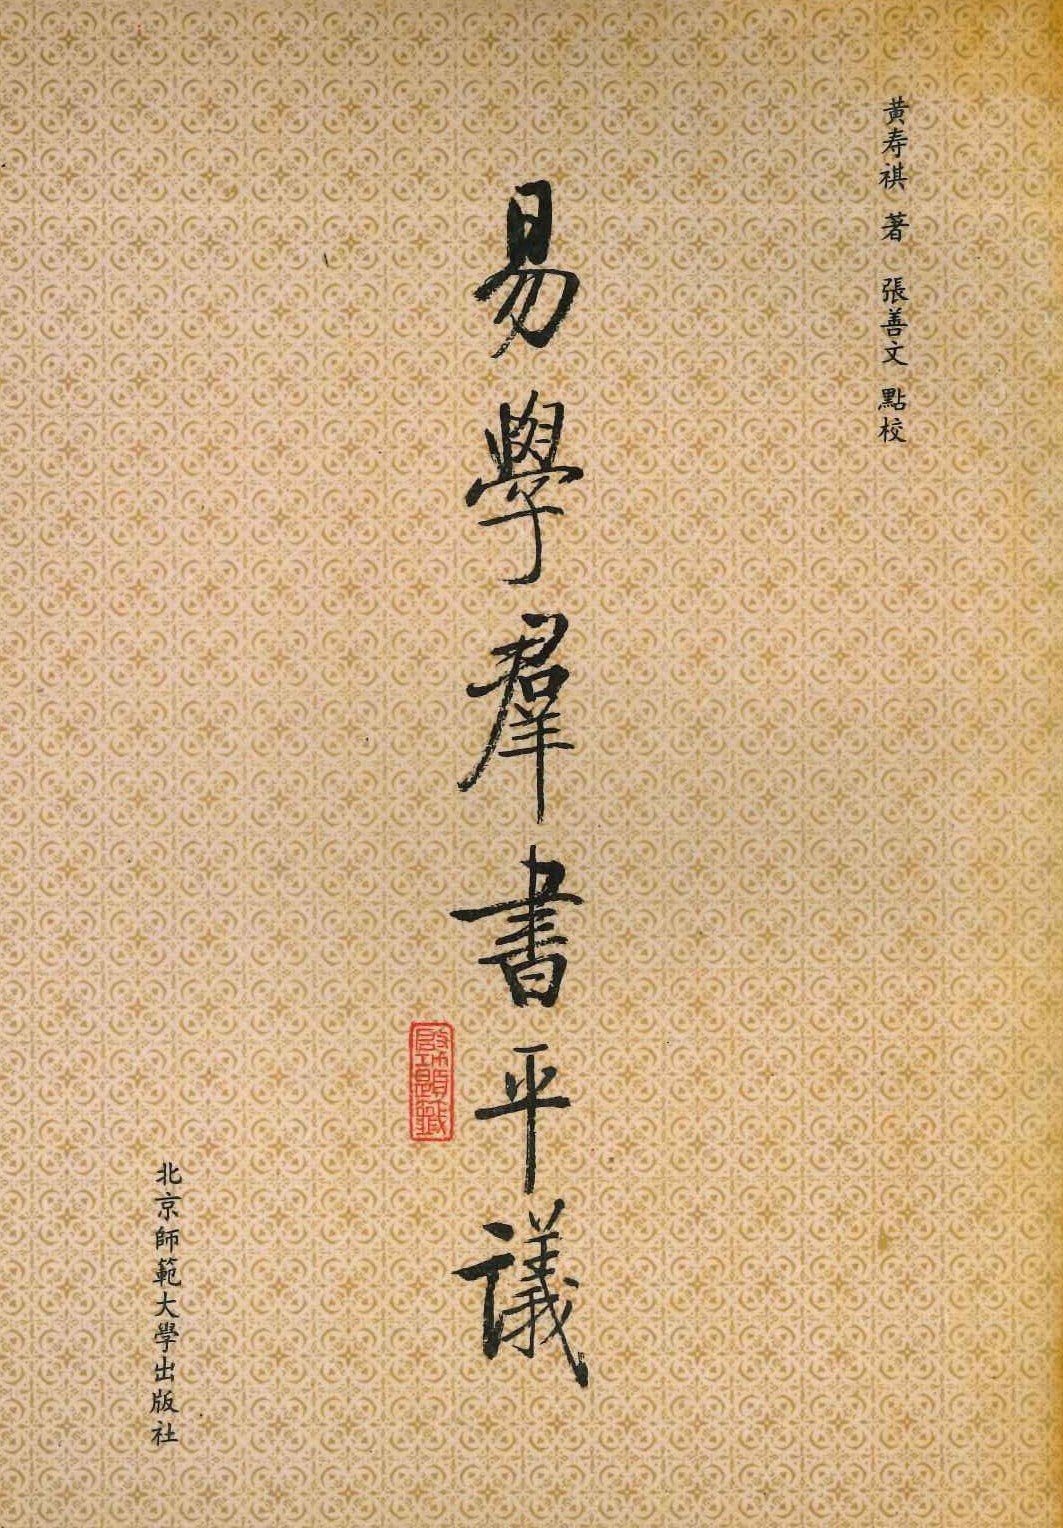 黄寿祺 著 張善文 點校
易學羣書平議
啟功題籤
北京師範大學出版社